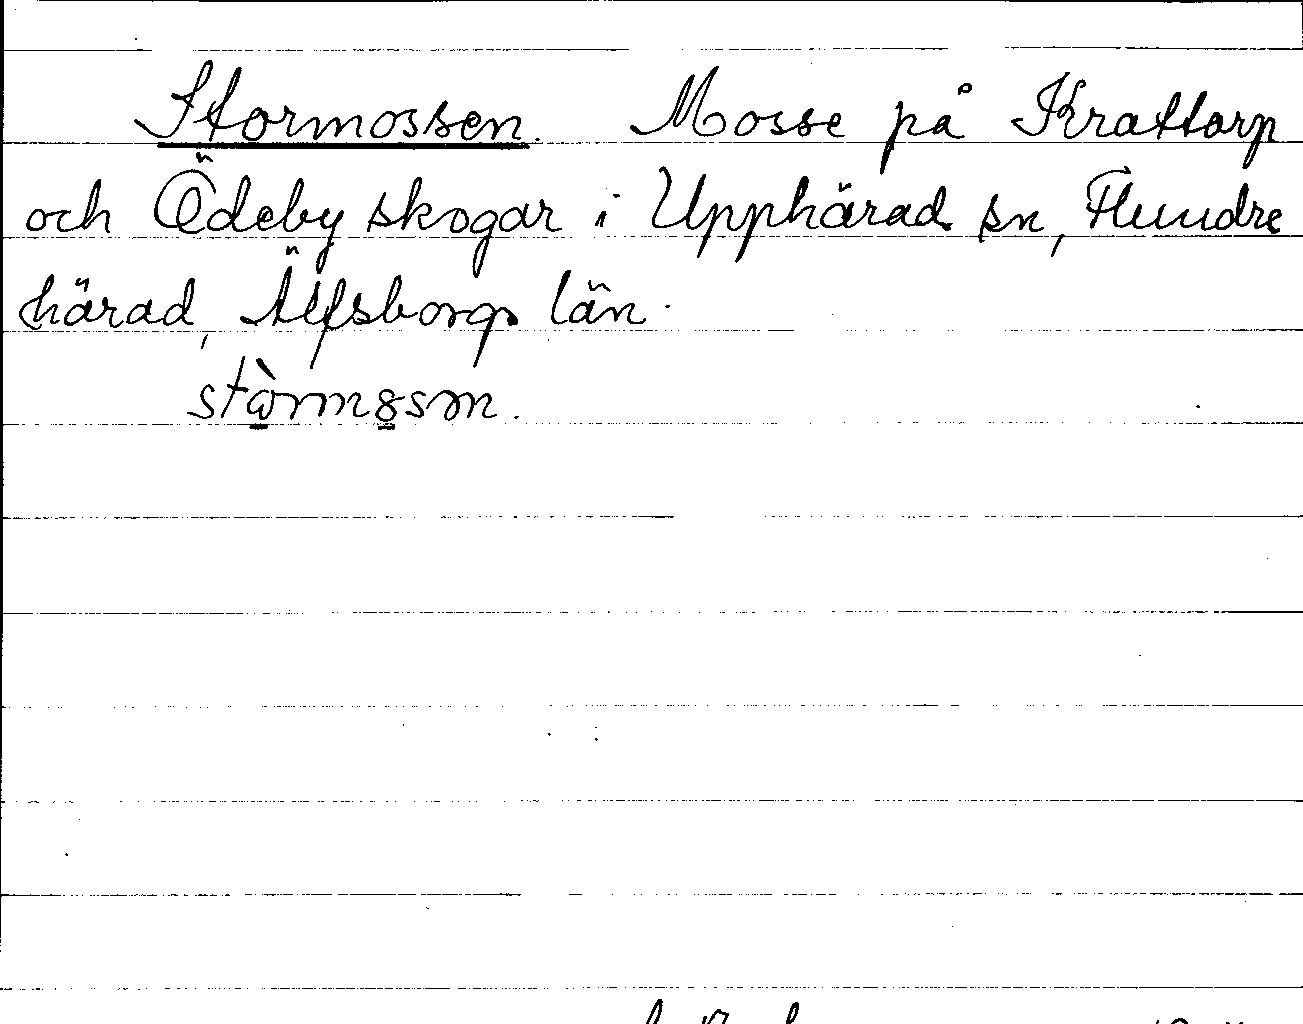 Stormossen. Mosse på Krattorp
och Ödeby skogar i Upphärad sn, Flundre
härad, Älfsborgs län.